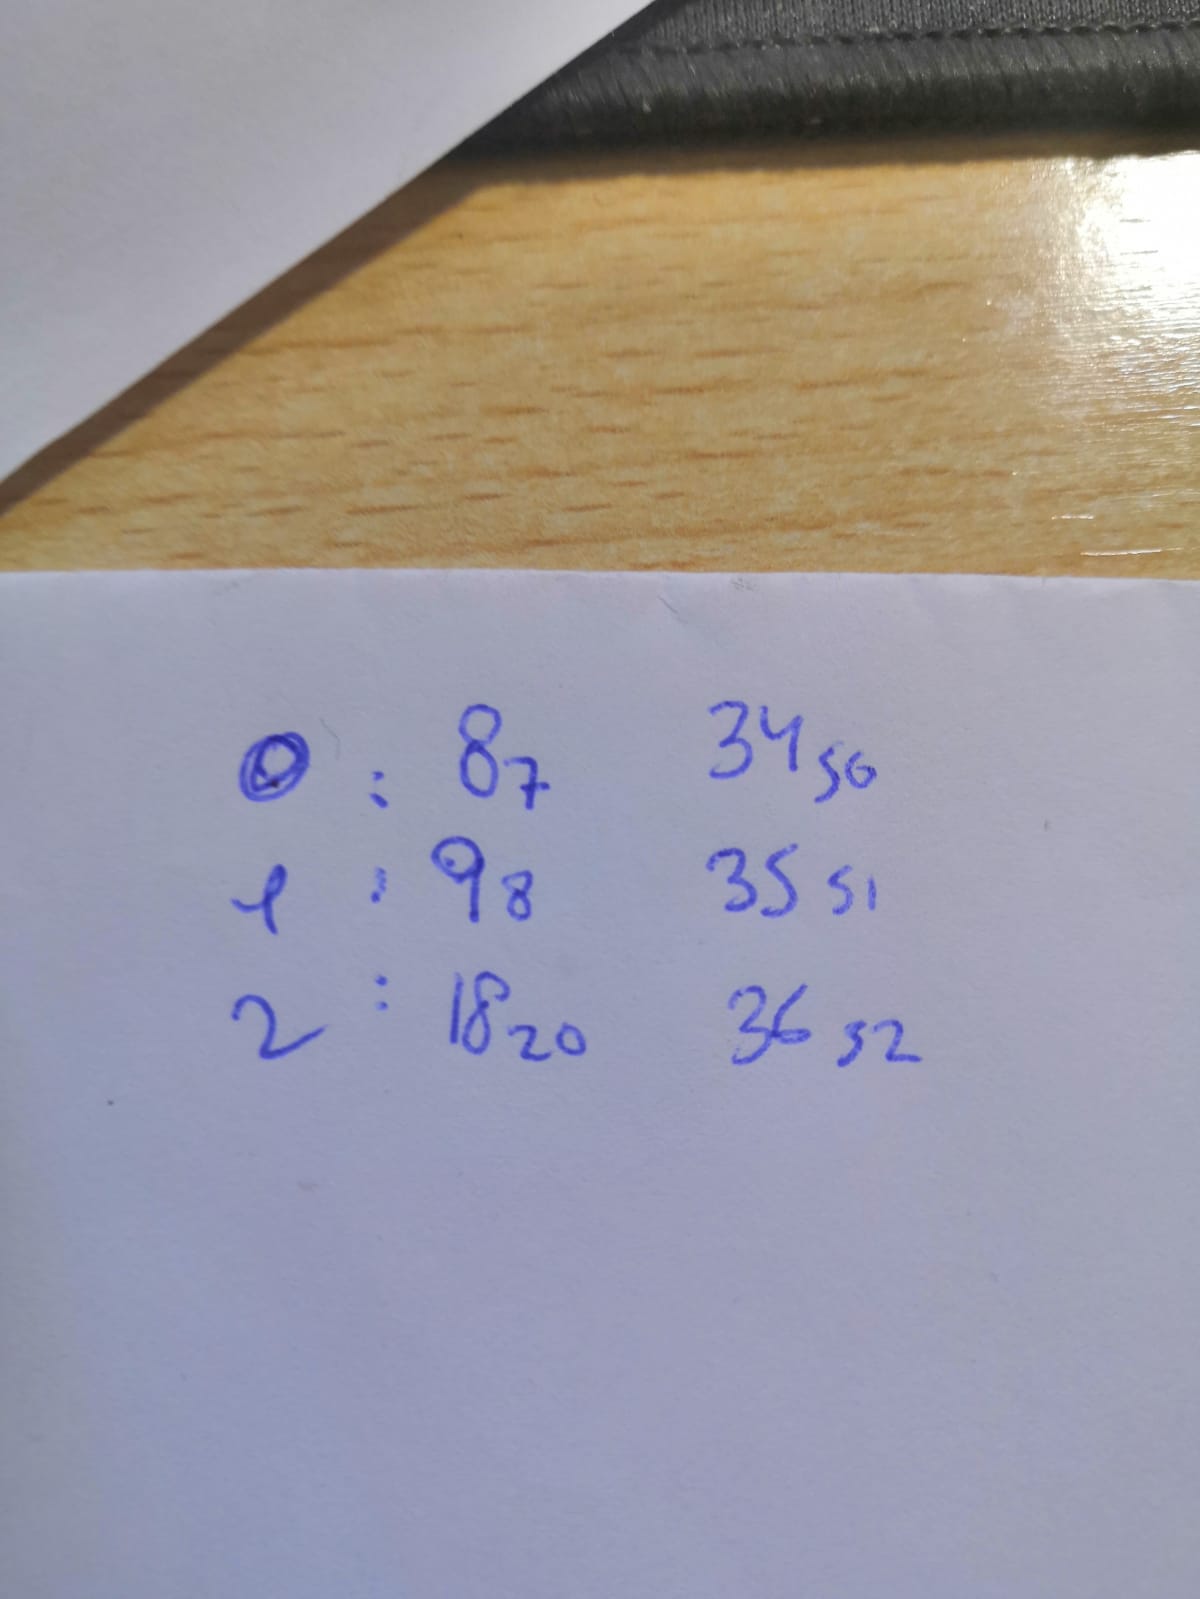 0 : 8 7 34 50
1 : 9 8 35 51
2 : 18 20 36 52